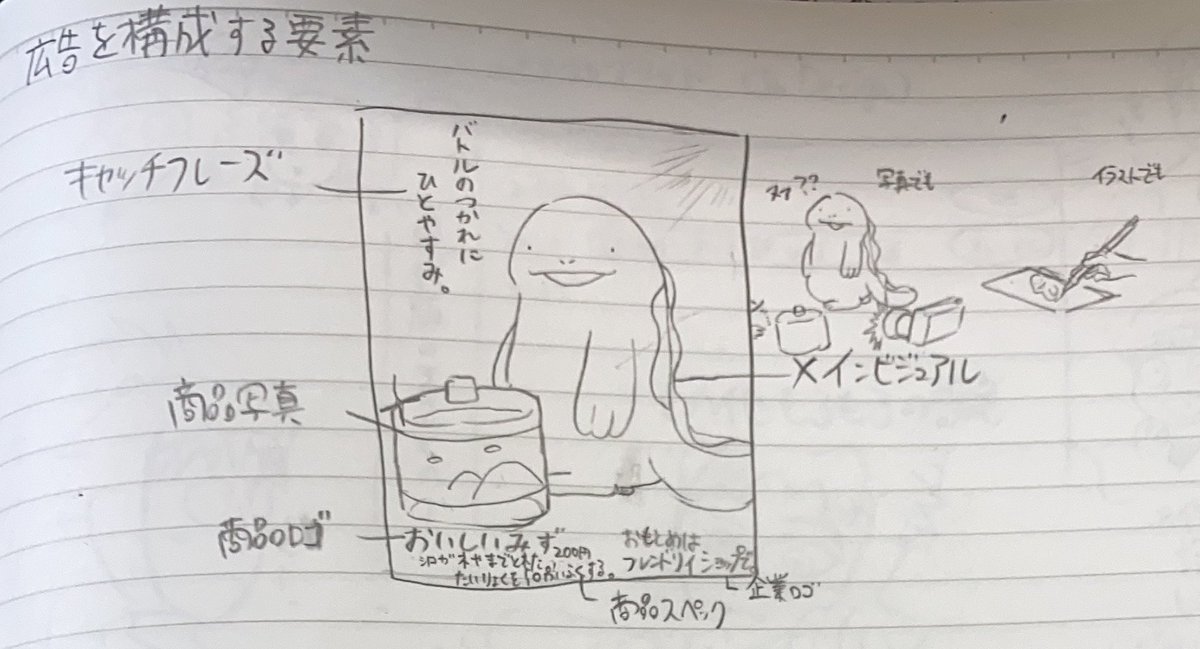 広告を構成する要素
キャッチフレーズ
バトルのつかれに
ひとやすみ。
ヌオ??
写真でも
イラストでも
メインビジュアル
商品写真
商品ロゴ
おいしいみず
200円
シロガネやまでとれた
たいりょくを かいふくする。
おもとめは
フレンドリィショップで。
企業ロゴ
商品スペック